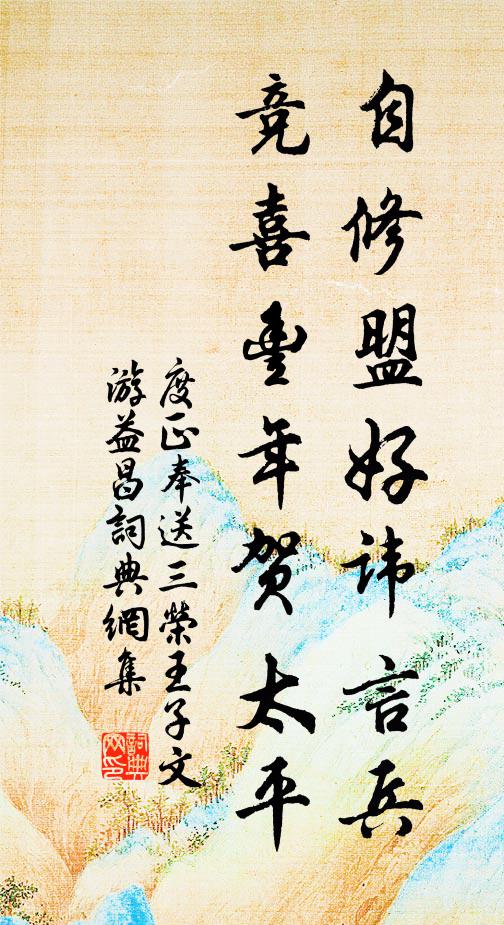 自修盟好讳言兵
竞喜丰年贺太平
度正奉送三荣王子文
游益昌詞典網集
詞典
网印